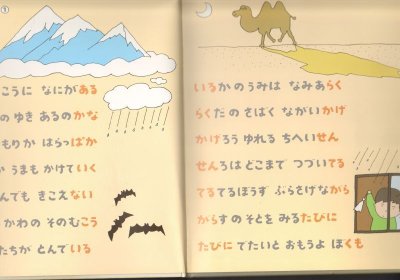 こうに なにがある
の ゆき あるのかな
もりか はらっぱか
うまも かけていく
んでも きこえない
かわの そのむこう
たちが とんでいる
いるかのうみは なみあらく
らくだの さばく ながいかげ
かげろう ゆれる ちへいせん
せんろは どこまで つづいてる
てるてるぼうず ぶらさげながら
からすの そとを みるたびに
たびに でたいと おもうよ ぼくも